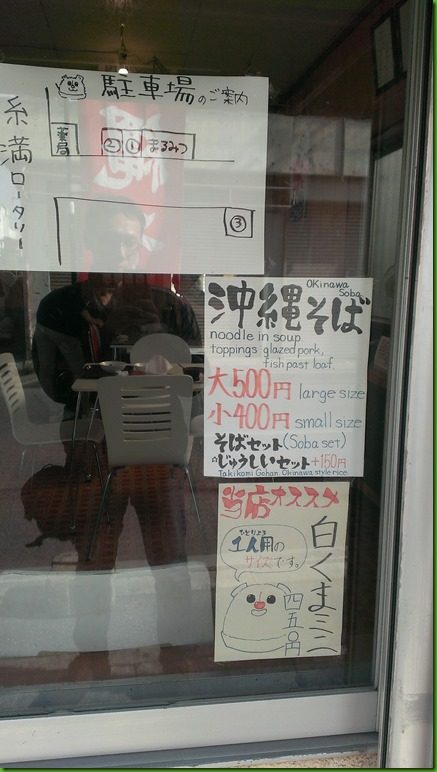 駐車場のご案内
糸満ロータリー
薬局
② ① まるみつ
③
沖縄そば
Okinawa
Soba
noodle in soup
toppings glazed pork,
fish past loaf
大500円 large size
小400円 small size
そばセット(Soba set)
☆じゅうしぃセット+150円
Takikomi Gohan Okinawa style rice
当店オススメ
白くまミニ
ひとりよう
1人用の
サイズです。
四五〇円